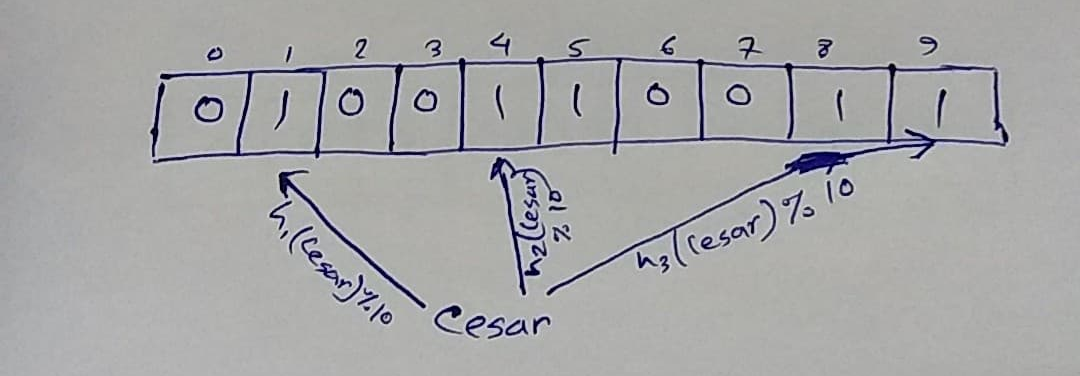 0 1 2 3 4 5 6 7 8 9
0 1 0 0 1 1 0 0 1 1
h₁(Cesar)%10
h₂(Cesar)
% 10
h₃(Cesar) % 10
Cesar